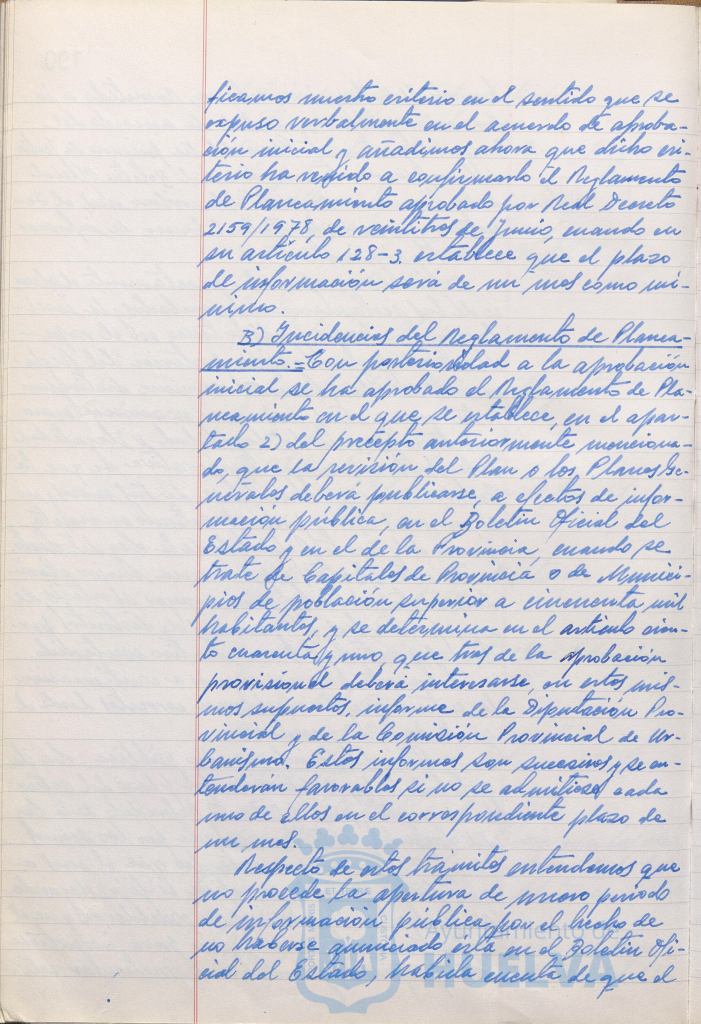 ficamos nuestro criterio en el sentido que se
expuso verbalmente en el acuerdo de aproba-
ción inicial y añadimos ahora que dicho cri-
terio ha venido a confirmarlo el Reglamento
de Planeamiento aprobado por Real Decreto
2159/1978, de veintitres de Junio, cuando en
su artículo 128-3. establece que el plazo
de información será de un mes como mí-
nimo.
B) Incidencias del Reglamento de Planea-
miento.- Con posterioridad a la aprobación
inicial se ha aprobado el Reglamento de Pla-
neamiento en el que se establece, en el apar-
tado 2) del precepto anteriormente menciona-
do, que la revisión del Plan o los Planes Ge-
nerales deberá publicarse, a efectos de infor-
mación pública, en el Boletín Oficial del
Estado y en el de la Provincia, cuando se
trate de Capitales de Provincia o de Munici-
pios de población superior a cincuenta mil
habitantes, y se determina en el artículo cien-
to cuarenta y uno, que tras de la aprobación
provisional deberá interesarse, en estos mis-
mos supuestos, informe de la Diputación Pro-
vincial y de la Comisión Provincial de Ur-
banismo. Estos informes son sucesivos y se en-
tenderán favorables si no se admitiese cada
uno de ellos en el correspondiente plazo de
un mes.
Respecto de estos trámites entendemos que
no procede la apertura de nuevo periodo
de información pública por el hecho de
no haberse anunciado esta en el Boletín Ofi-
cial del Estado, habida cuenta de que el
Ayuntamiento de
HUELVA